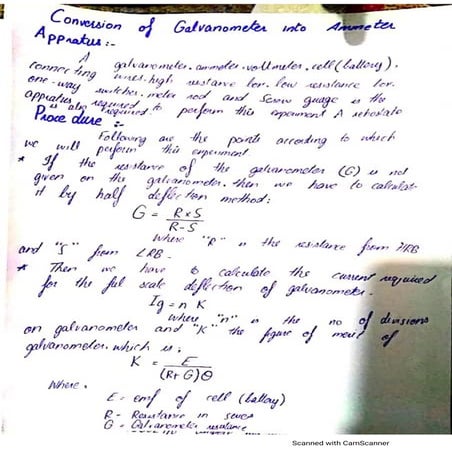 Conversion of Galvanometer into Ammeter
Appratus:-
A galvanometer, ammeter, voltmeter, cell (battery),
connecting wires, high resistance box, low resistance box,
one-way switches, meter rod and screw guage is the
appratus required to perform this experiment A rehostate
is also required.
Procedure :-
Following are the points according to which
we will perform this experiment
* If the resistance of the galvanometer (G) is not
given on the galvanometer, then we have to calculate
it by half deflection method:
G = R×S
R-S
Where "R" is the resistance from HRB
and "S" from LRB.
* Then we have to calculate the current required
for the full scale deflection of galvanometer.
Ig = n K
Where "n" is the no of divisions
on galvanometer and "K" the figure of merit of
galvanometer. which is;
K = E
(R+G)Θ
Where,
E - emf of cell (battery)
R - Resistance in series
G - Galvanometer resistance
Scanned with CamScanner